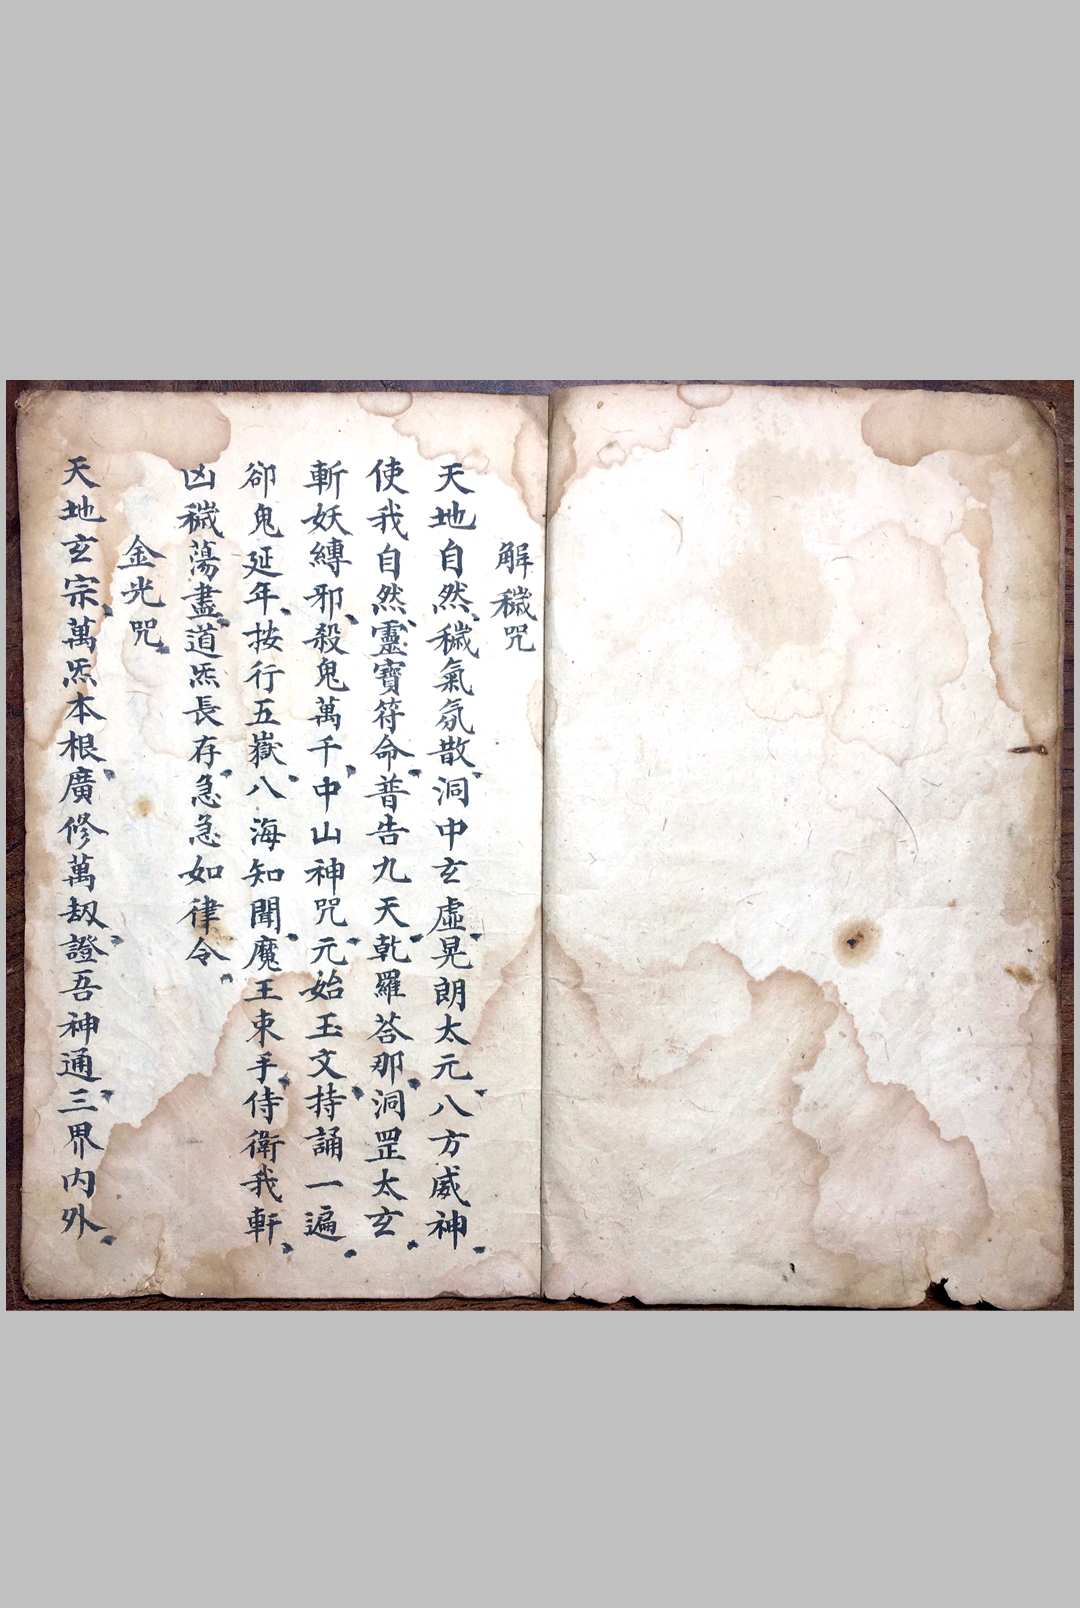 解穢咒
天地自然、穢氣氛散、洞中玄虛、晃朗太元、八方威神、
使我自然、靈寶符命、普告九天、乾羅荅那、洞罡太玄、
斬妖縛邪、殺鬼萬千、中山神咒、元始玉文、持誦一遍、
卻鬼延年、按行五嶽、八海知聞、魔王束手、侍衛我軒、
凶穢蕩盡、道炁長存、急急如律令、
金光咒
天地玄宗、萬炁本根、廣修萬劫、證吾神通、三界內外、